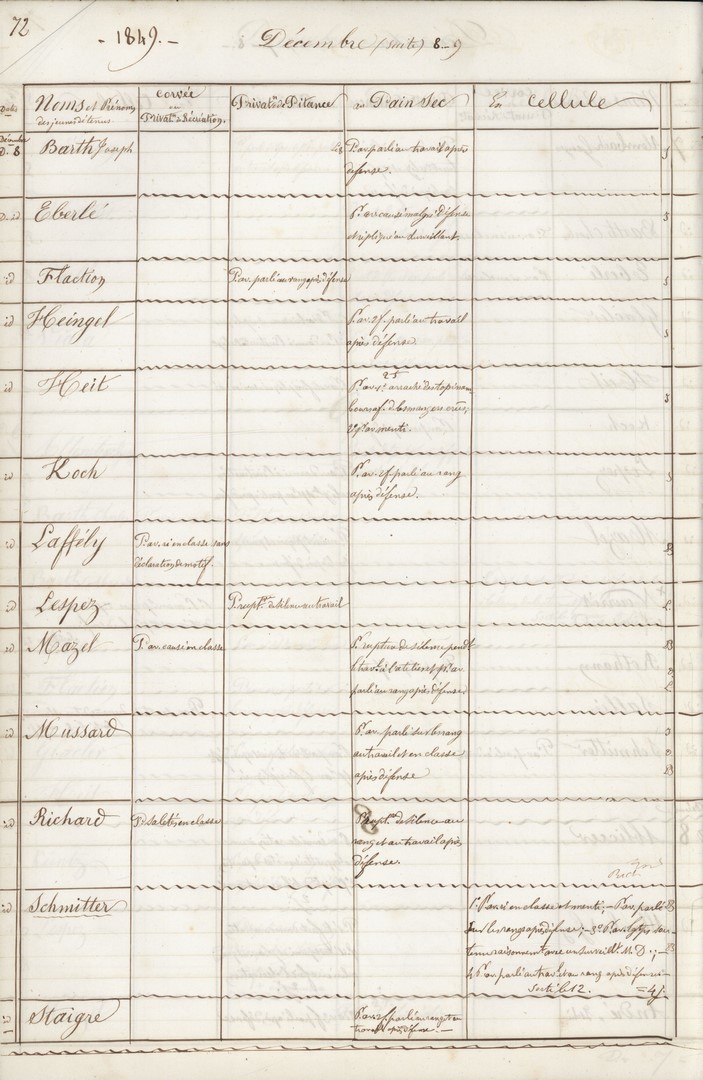 72
- 1849. -
Décembre (suite) 8 - 9
Dates
Noms et Prénoms
des jeunes détenus
corvée
ou
Privat. de Récréation.
Privat.n de Pitance
au Pain Sec
En cellule
Décembre
D. 8
Barth Joseph
P. av. parlé au travail après
défense.
5
D. id
Eberlé
P. av. causé malgré défense
et répliqué au surveillant.
5
id
Flaction
P. av. parlé au rang après défense
5
id
Heingel
P. av. 2 f. parlé au travail
après défense.
5
id
Heit
25
P. av. 1° arraché des topinam-
bours af. de les manger crus;
2° p. av. menti.
5
id
Koch
P. av. 2 f. parlé au rang
après défense.
5
id
Laffély
P. av. ri en classe sans
déclaration de motif.
B
id
Lespez
P. rupt. de silence au travail
L
id
Mazel
P. av. causé en classe
P. rupture de silence pendt
le trav. à l'atelier et p. av.
parlé au rang après défense
B
L
id
Mussard
P. av. parlé sur le rang
au travail et en classe
après défense
B
id
Richard
P. saletés en classe
P. rupt. de silence au
rang et au travail après
défense.
id
Schmitter
1° P. av. ri en classe et menti; - P. av. parlé
sur le rang après défense; - 3° P. av. lgtps sou-
tenu raisonnemt avec un surveillt. M. D.; -
4 P. av. parlé au travl et au rang après défense -
Sorti le 12. = 4 j.
id
Staigre
P. av. 2 f. parlé au rang et au
travail après défense. -